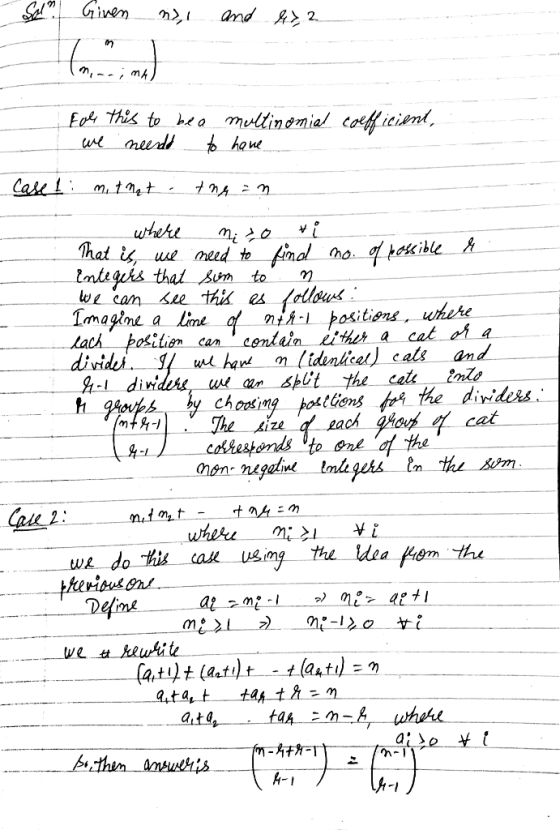 Solⁿ. Given n≥1 and r≥2
(n
n1, - - ; nr)
For this to be a multinomial coefficient,
we needd to have
Case 1: n1+n2+ - +nr = n
where ni≥0 ∀i
That is, we need to find no. of possible r
integers that sum to n
We can see this as follows:
Imagine a line of n+r-1 positions, where
each position can contain either a cat or a
divider. If we have n (identical) cats and
r-1 dividers, we can split the cats into
r groups by choosing positions for the dividers:
(n+r-1
r-1). The size of each group of cat
corresponds to one of the
non-negative integers in the sum.
Case 2: n1+n2+ - +nr=n
where ni≥1 ∀i
we do this case using the idea from the
previous one.
Define ai = ni-1 ⇒ ni = ai+1
ni≥1 ⇒ ni-1≥0 ∀i
we rewrite
(a1+1)+(a2+1)+ - +(ar+1) = n
a1+a2+ +ar+r = n
a1+a2 . +ar = n-r, where
ai≥0 ∀i
So, then answer is (n-r+r-1
r-1) = (n-1
r-1)